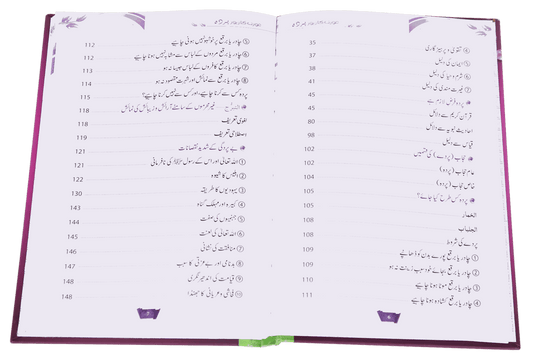 ④ تقویٰ و پرہیزگاری 35
⑤ ایمان کی دلیل 37
⑥ شرم و حیا کی دلیل 38
⑦ غیرت مندی کی دلیل 41
پردہ فرض لازم ہے 45
قرآن کریم سے دلائل 45
احادیث نبویہ سے دلائل 80
قیاس سے دلیل 98
حجاب (پردے) کی قسمیں 102
عام حجاب (پردہ) 102
خاص حجاب (پردہ) 104
پردہ کس طرح کیا جائے؟ 105
الخمار 105
الجلباب 108
پردے کی شروط 108
① چادر یا برقع پورے بدن کو ڈھانپے 109
② چادر یا برقع بجائے خود سبب زینت نہ ہو 109
③ چادر یا برقع موٹا ہونا چاہیے 110
④ چادر یا برقع کشادہ ہونا چاہیے 111
⑤ چادر یا برقع پر خوشبو نہیں ہونی چاہیے 112
⑥ چادر یا برقع مردوں کے لباس سے مشابہ نہیں ہونا چاہیے 112
⑦ چادر یا برقع کافروں کے لباس جیسا نہ ہو 114
⑧ چادر یا برقع سے نمائش اور شہرت مقصود نہ ہو 114
پردہ کس سے کرنا چاہیے، اور کس سے نہیں کرنا چاہیے؟ 115
غیر محرموں کے سامنے آرائش و زیبائش کی نمائش 118
لغوی تعریف 118
اصطلاحی تعریف 119
بے پردگی کے شدید نقصانات 121
① اللہ تعالیٰ اور اس کے رسول ﷺ کی نافرمانی 121
② ابلیس کا شیوہ 122
③ یہودیوں کا طریقہ 130
④ کبیرہ اور مہلک گناہ 143
⑤ جہنمیوں کی صفت 144
⑥ اللہ تعالیٰ کی لعنت 145
⑦ منافقت کی نشانی 146
⑧ بدنامی اور بے عزتی کا سبب 147
⑨ قیامت کی اندھیر نگری 148
⑩ فحاشی و عریانی کا جھنڈا 148